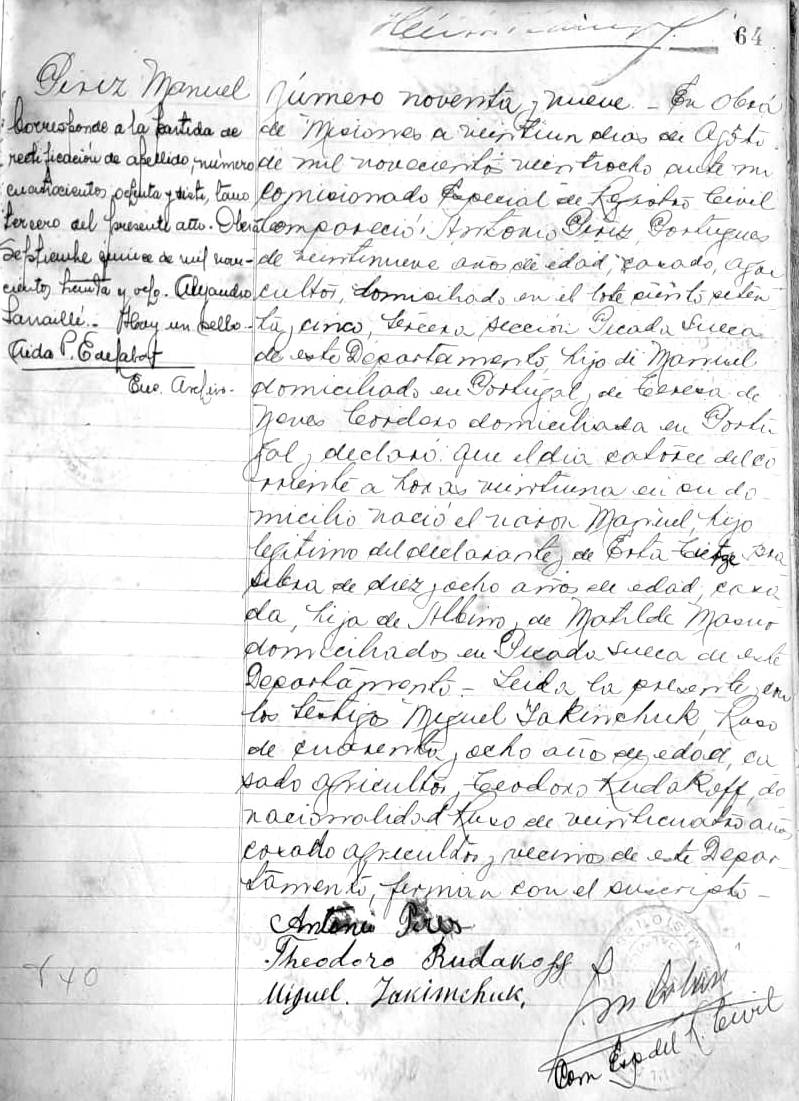 64
Pérez Manuel
Corresponde a la partida de
rectificación de apellido, número
cuatrocientos ochenta y siete, tomo
tercero del presente año. Oberá
Septiembre quince de mil nove-
cientos treinta y ocho. Alejandro
Hay un sello.
Aida P.
Enc. Archivo.
Número noventa y nueve. - En Oberá
de Misiones a veintiun dias de Agosto
de mil novecientos veintiocho ante mi
Comisionado Especial de Registro Civil
Compareció: Antonio Pérez, Portugues
de veintinueve años de edad, casado, agri
cultor, domiciliado en el lote ciento seten
ta y cinco, tercera sección Picada Sueca
de este Departamento, hijo de Manuel
domiciliado en Portugal y de Teresa de
Neves Cordero domiciliada en Portu
gal y declaró: que el dia catorce del co
rriente a horas veintiuna en su do
micilio nació el varon Manuel, hijo
legítimo del declarante y de Erta Bra
silera de diez y ocho años de edad, casa
da, hija de Albino y de Matilde
domiciliados en Picada Sueca de este
Departamento - Leida la presente con
los testigos Miguel Jakimchuk, Ruso
de cuarenta y ocho años de edad, ca
sado agricultor y Teodoro Rudakoff, de
nacionalidad Ruso de veinticuatro años
casado agricultor y vecinos de este Depar-
tamento, firman con el suscripto -
Antonio Pires
Theodoro Rudakoff
Miguel. Jakimchuk.
Com Esp del R. Civil